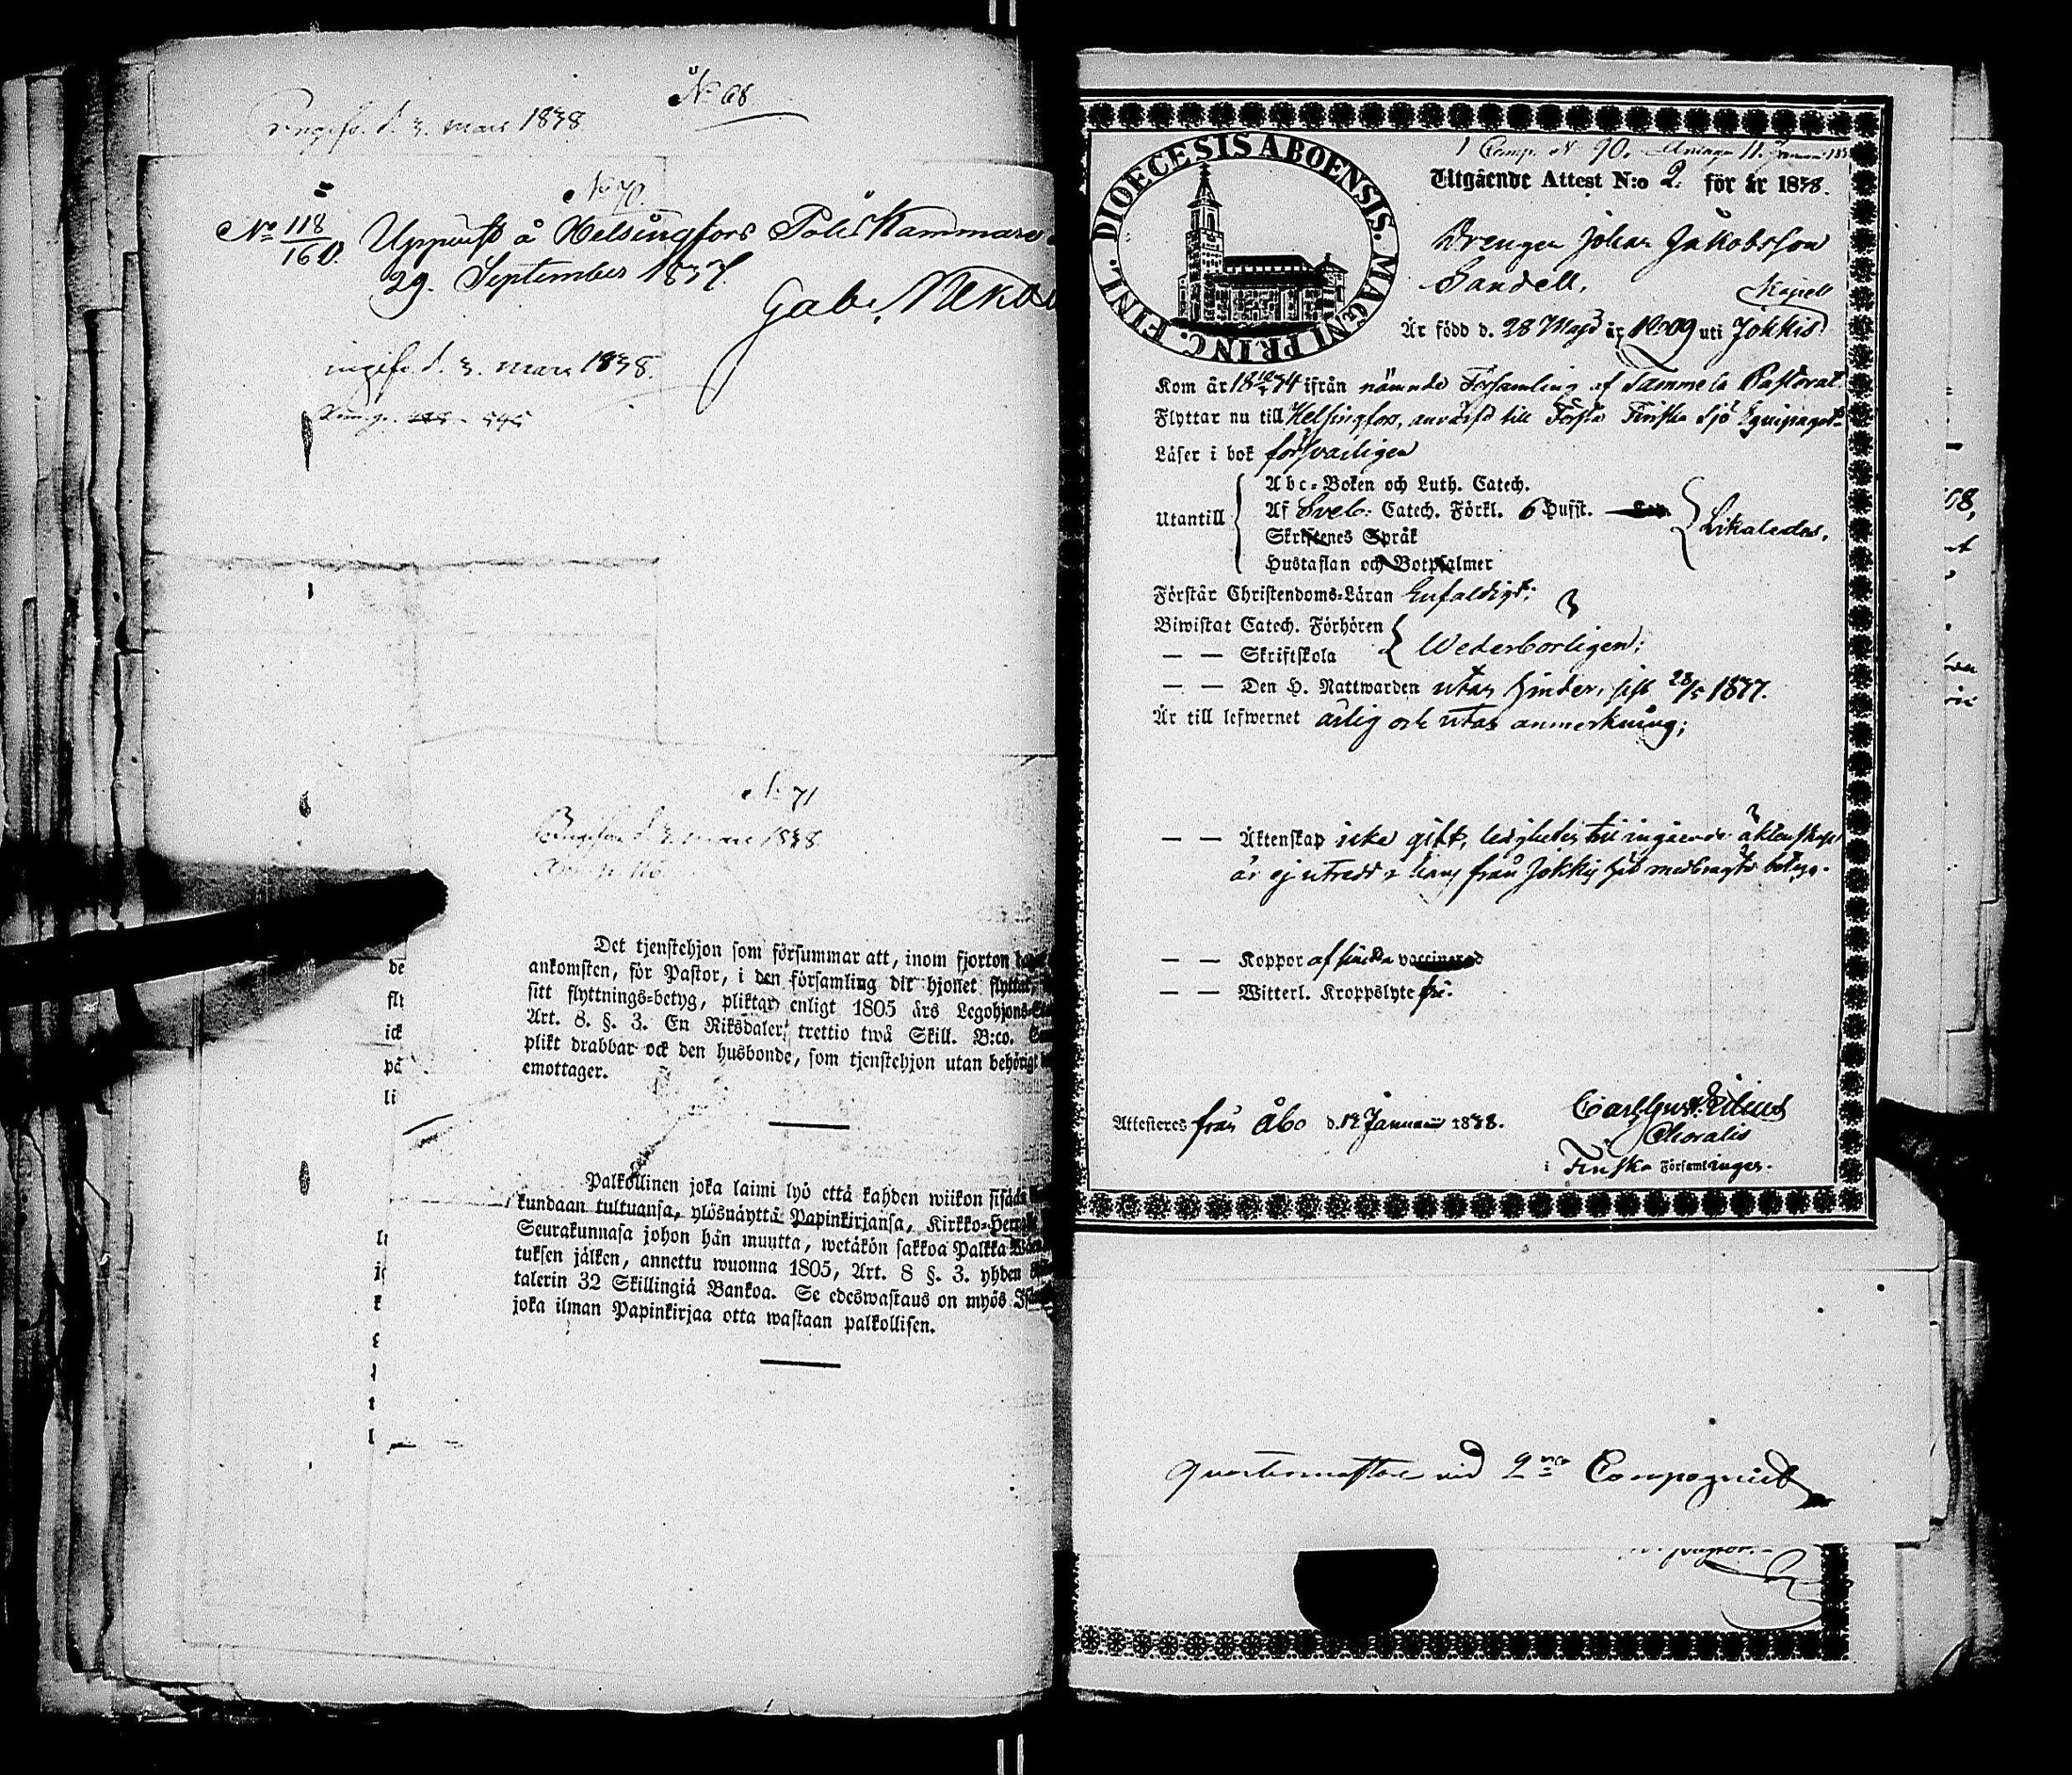 No 68
ingifv. d. 3. mars 1838
No 70.
No 118/160. Uppvist å Helsingfors Polis Kammare
29. September 1837.
Gab.
ingifv. d. 3. mars 1838.
No 71
d. 3. mars 1838
Det tjenstehjon som försummar att, inom fjorton
ankomsten, för Pastor, i den församling dit hjonet flyttat,
sitt flyttnings-betyg, pliktar enligt 1805 års Legohjons-
Art. 8. §. 3. En Riksdaler trettio twå Skill. B:co.
plikt drabbar ock den husbonde, som tjenstehjon utan behörigt
emottager.
Palkollinen joka laimi lyö että kahden wiikon sisään
kundaan tultuansa, ylösnäyttä Papinkirjansa, Kirkko-Herralle
Seurakunnasa johon hän muutta, wetäkön sakkoa Palkka
tuksen jälken, annettu wuonna 1805, Art. 8 §. 3. yhden
talerin 32 Skillingiä Bankoa. Se edeswastaus on myös
joka ilman Papinkirjaa otta wastaan palkollisen.
de
fly
ick
på
li
1 Comp. N 90.
DIOECESIS ABOENSIS. MAGNI PRINC. FINL.
Utgående Attest N:o 2. för år 1838.
Drengen Johan Jakobsson
Sandell,
Kapell
Är född d. 28 Maji år 1809 uti Jokkis
Kom år 1834 ifrån nämnde Församling af Tammela Pastorat
Flyttar nu till Helsingfors, anvärfd till Första Finska Sjö Equipaget
Läser i bok försvarligen
Utantill
Abc-Boken och Luth. Catech.
Af Sveb. Catech. Förkl. 6 Hufst.
Skriftenes Språk
Hustaflan och Botpsalmer
Likaledes.
Förstår Christendoms-Läran Enfaldigt;
Biwistat Catech. Förhören
— — Skriftskola
Wederbörligen;
— — Den H. Nattwarden utan hinder, sist 28/5 1837.
Är till lefwernet ärlig och utan anmerkning;
— — Äktenskap icke gift, ledigheten till ingående äktenskap
är ej utredd i hans från Jokkis hit medbragte betyg.
— — Koppor af vaccinerad
— — Witterl. Kroppslyte fri.
Attesteres från Åbo d. 12 Januari 1838.
Carl Gust.
Choralis
i Finska Församlingen.
Quartermästare vid 2dra Compagniet